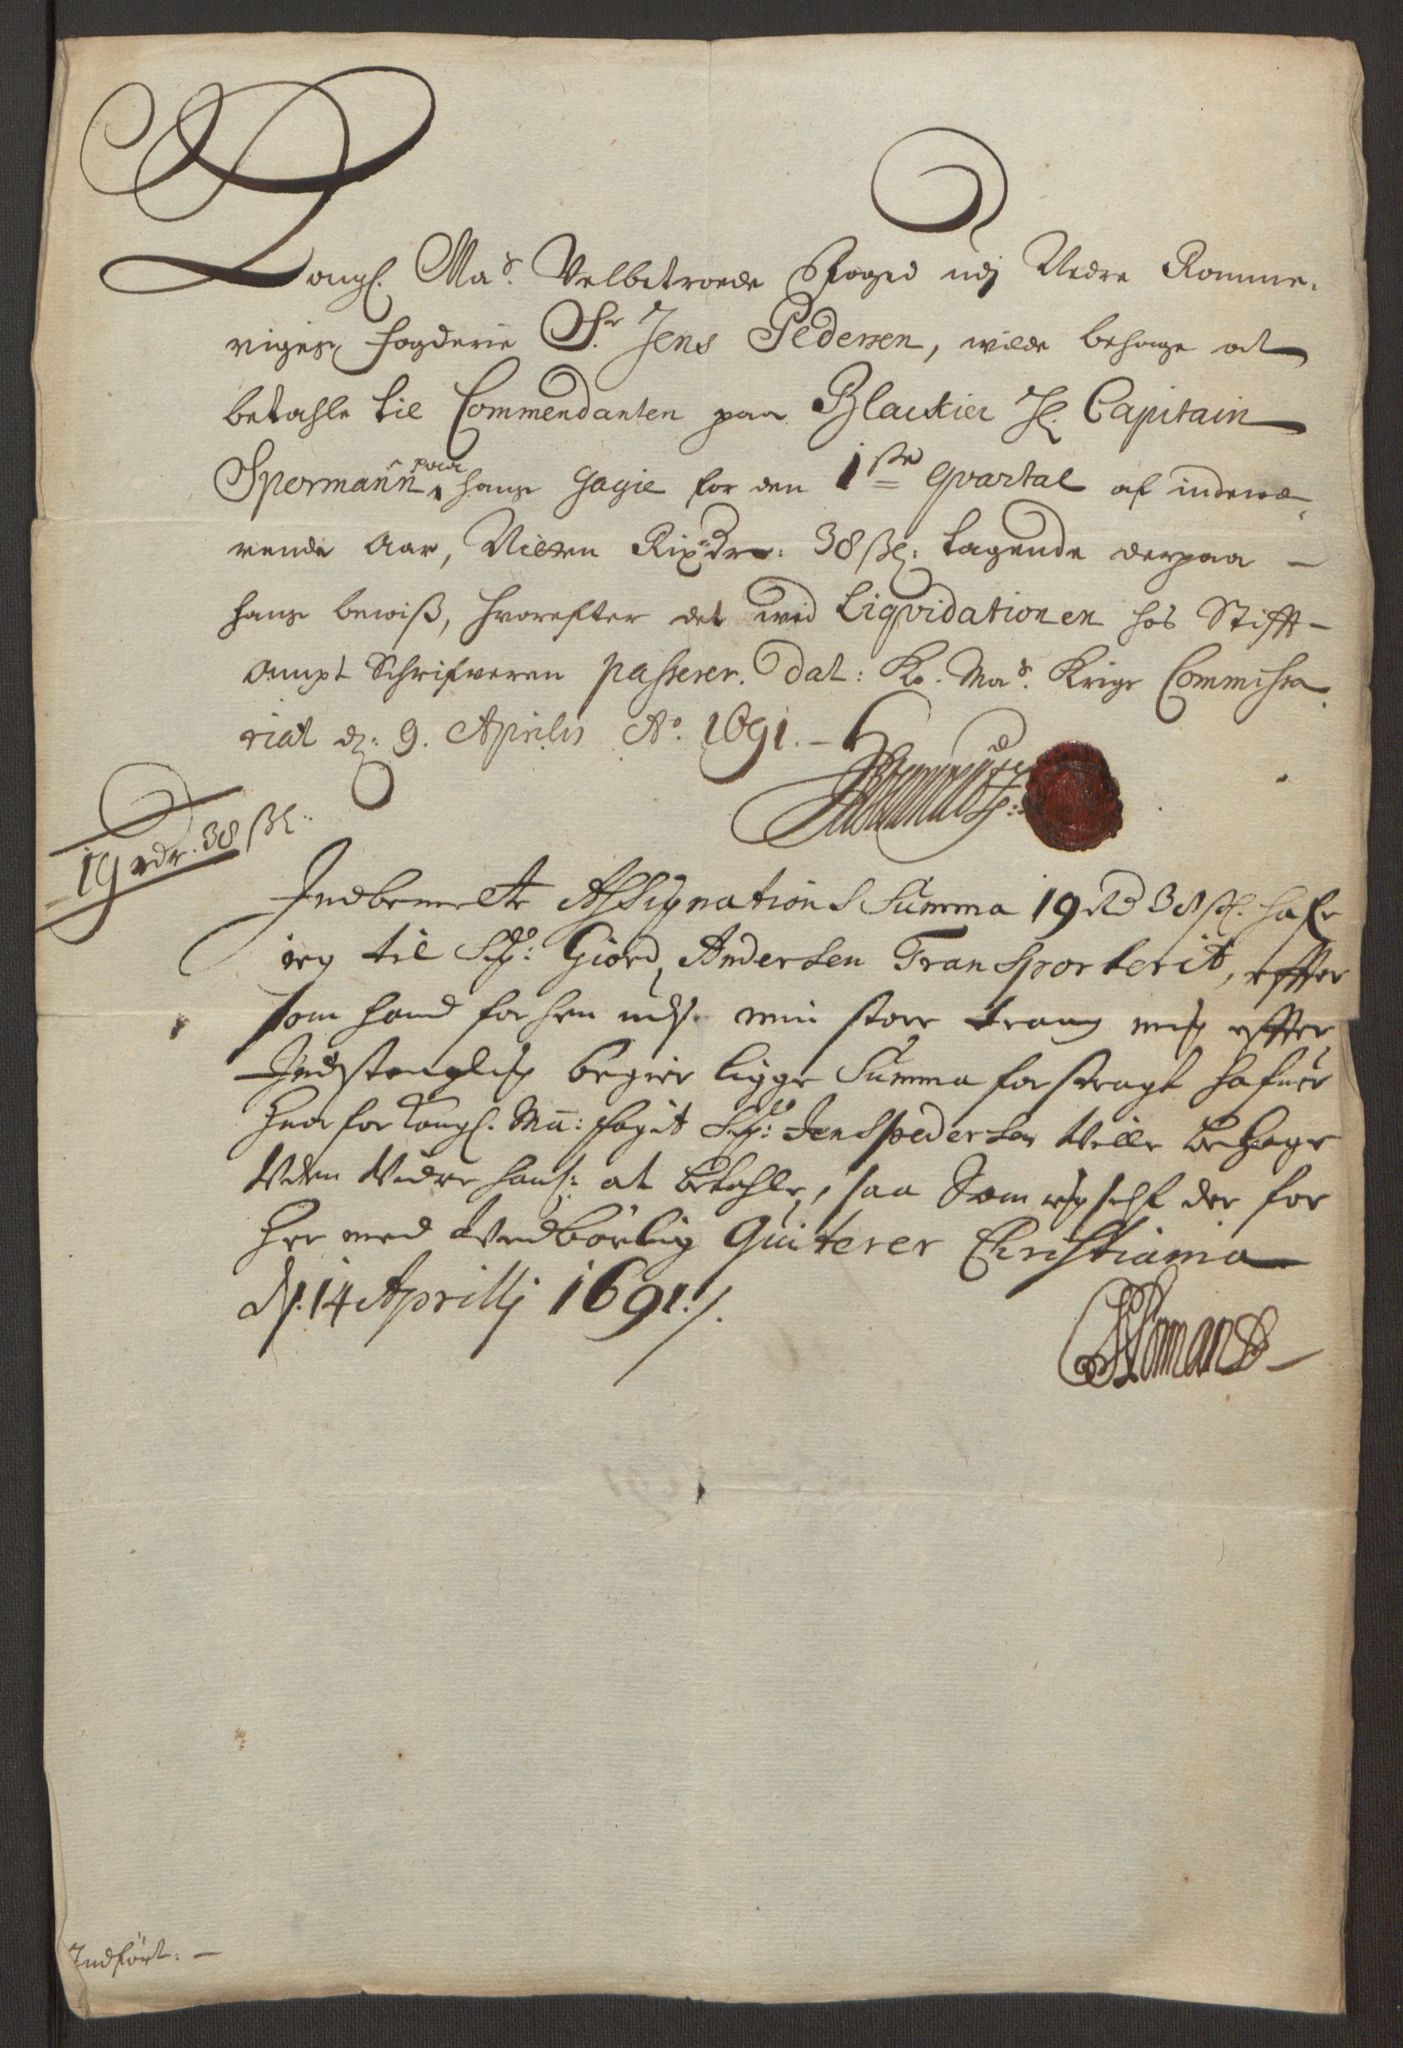 Kongl. Ma.s Velbetroede Foged udj Nedre Romme-
riges fogderie Sr. Jens Pedersen, wilde behage at
betahle til Commendanten paa Blackier Hl. Capitain
Spormann paa hans gagie for den 1ste Qvartal af indewæ-
rende Aar, Nitten Rixdr: 38 ßl: tagende derpaa -
hans bewiß, hvorefter det wed Liqvidationen hos Stifft-
ampt Schrifveren passerer. Dat: Ko. Ma.s Krigs Commissa-
riat d: 9. Aprilis Ao. 1691. -
19 rdr. 38 ßl:
Indbemelte Assignations Summa 19 Rd 38 ßl. hafr
ieg til Sr: Giord Andersen Transporterit, effter
som hand for hen udj min store trang mig effter
Indstendig begier ligge Summa forstragt hafuer
Huorfor Kongl. Ma: fogit Sr: Jens Pedersen Ville behage
Uden Videre hans: at betahle, saa Som ieg self der for
Her med Tredbörlig Quiterer Christiania
d. 14 Aprillj 1691 ./.
Indfört: -